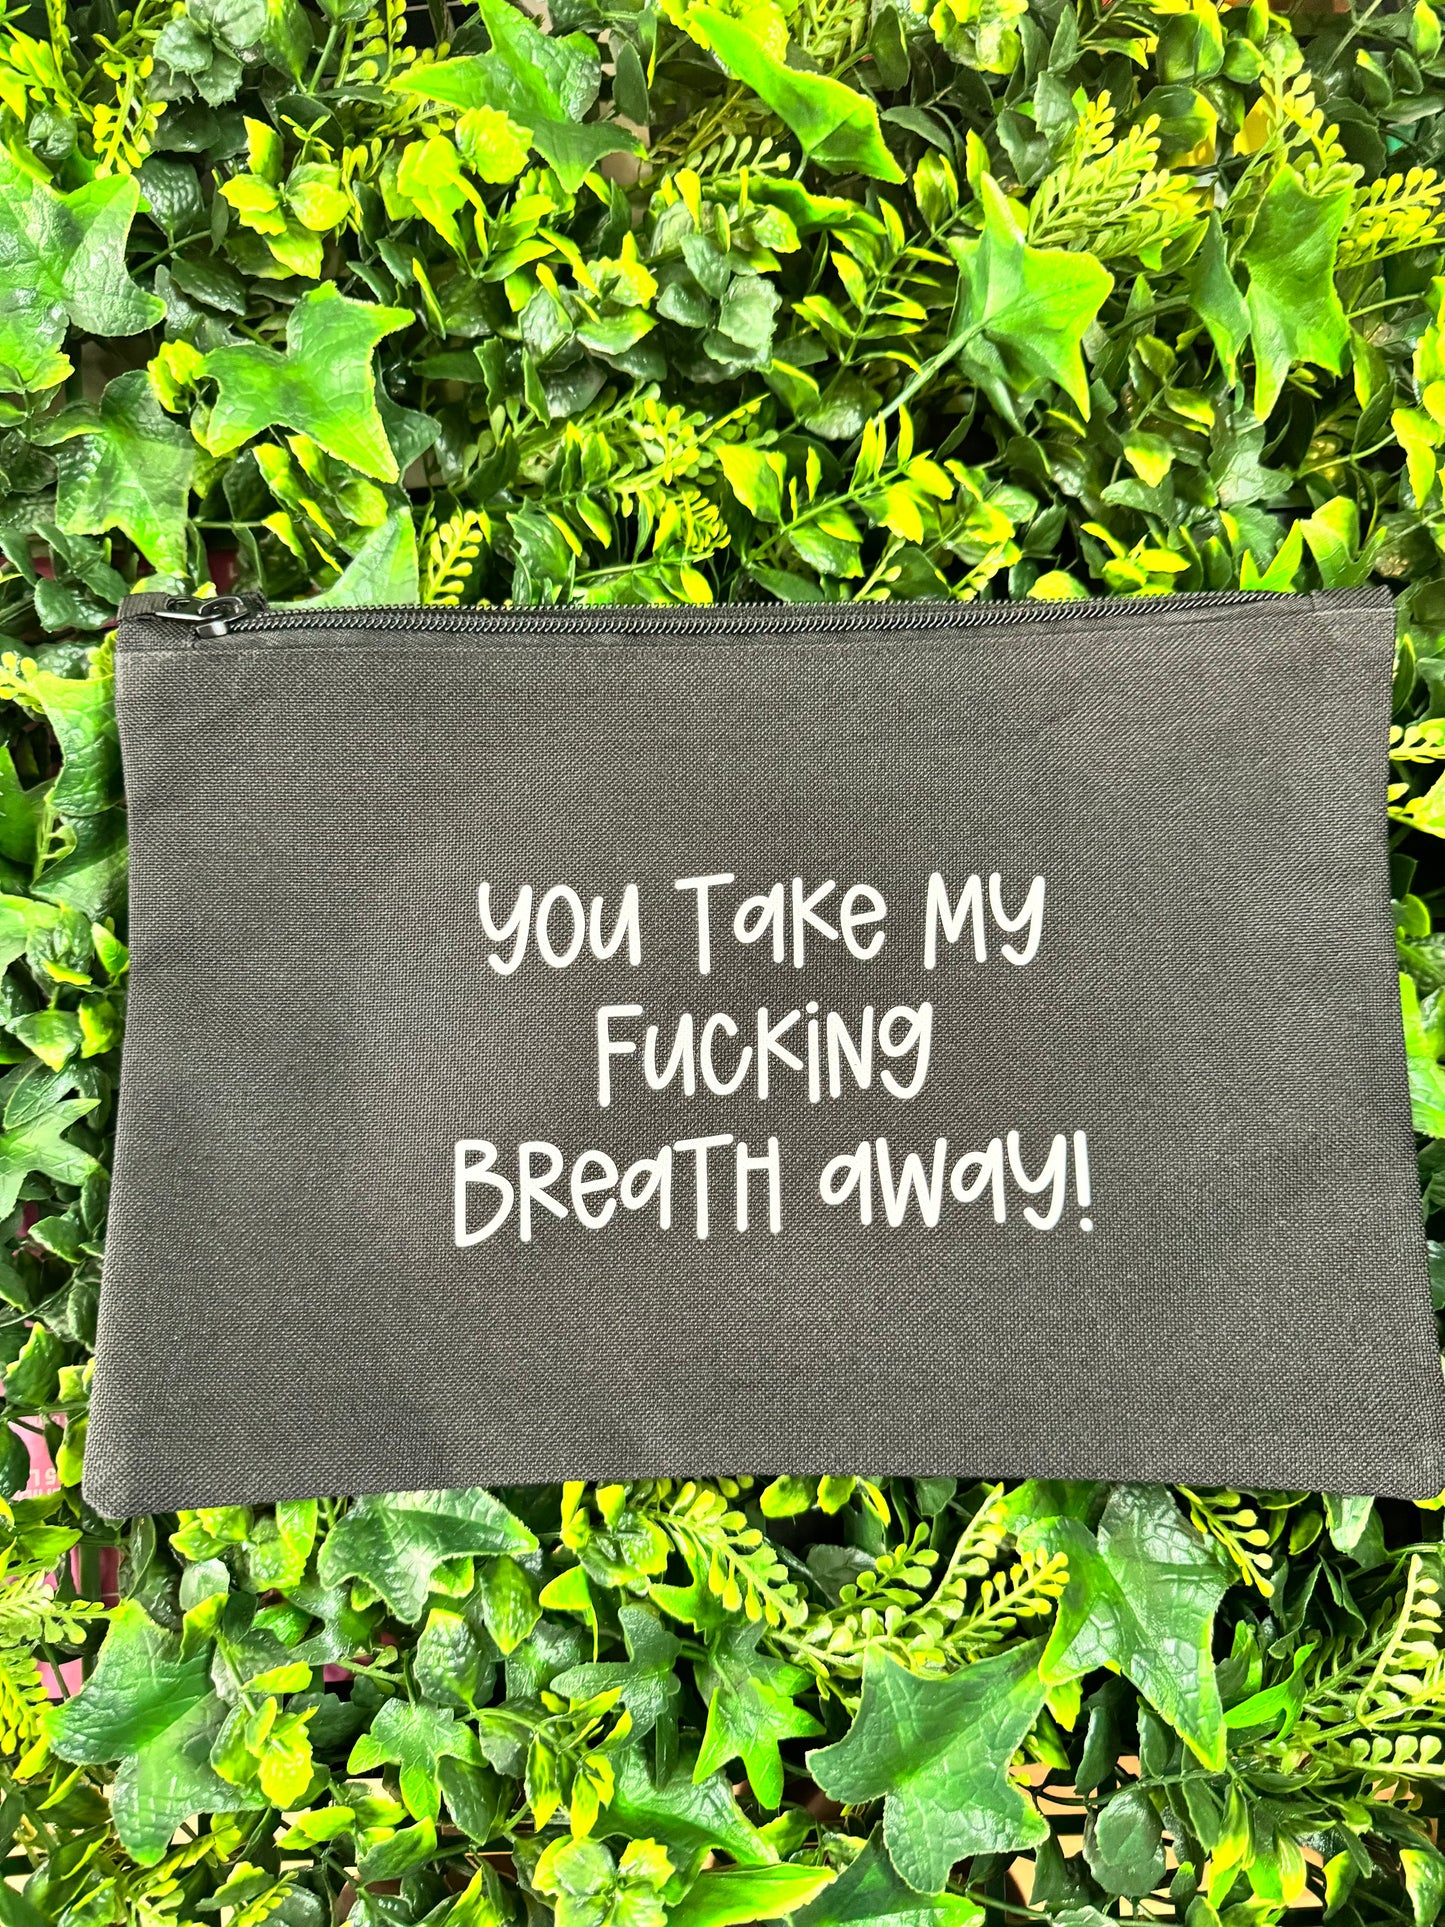 You Take My
Fucking
Breath away!